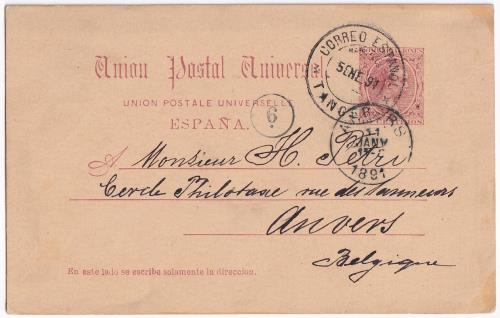 Union Postal Universal
UNION POSTALE UNIVERSELLE
ESPAÑA.
CORREO ESPAÑOL
5 ENE 91
TANGER
6
ANVERS
11
JANV
1891
A Monsieur H. Petri
Cercle Philotaxe rue des Tanneurs
Anvers
Belgique
En este lado se escribe solamente la direccion.